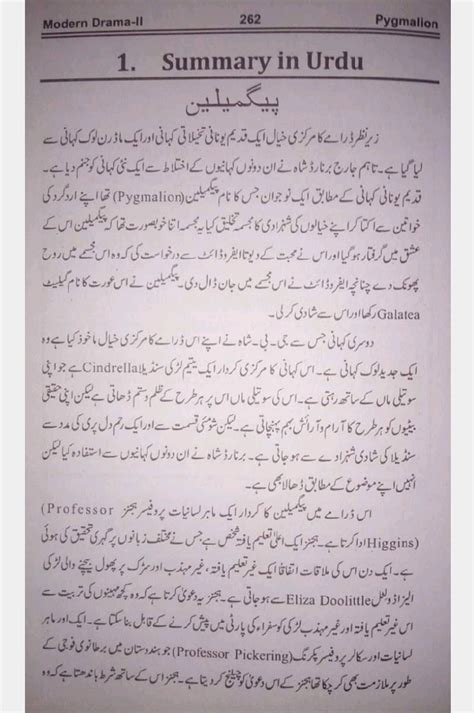 Modern Drama-II 262 Pygmalion
1. Summary in Urdu
پیگمیلین
زیر نظر ڈرامے کا مرکزی خیال ایک قدیم یونانی تخیلاتی کہانی اور ایک ماڈرن لوک کہانی سے
لیا گیا ہے۔ تاہم جارج برنارڈ شاہ نے ان دونوں کہانیوں کے اختلاط سے ایک نئی کہانی کو جنم دیا ہے۔
قدیم یونانی کہانی کے مطابق ایک نوجوان جس کا نام پیگمیلین (Pygmalion) تھا اپنے اردگرد کی
خواتین سے اکتا کر اپنے خیالوں کی شہزادی کا مجسمہ تخلیق کیا یہ مجسمہ اتنا خوبصورت تھا کہ پیگمیلین اس کے
عشق میں گرفتار ہو گیا اور اس نے محبت کے دیوتا ایفروڈائٹ سے درخواست کی کہ وہ اس مجسمے میں روح
پھونک دے چنانچہ ایفروڈائٹ نے اس مجسمے میں جان ڈال دی۔ پیگمیلین نے اس عورت کا نام گیلیٹ
Galatea رکھا اور اس سے شادی کر لی۔
دوسری کہانی جس سے جی۔ بی۔ شاہ نے اپنے اس ڈرامے کا مرکزی خیال ماخوذ کیا ہے وہ
ایک جدید لوک کہانی ہے۔ اس کہانی کا مرکزی کردار ایک یتیم لڑکی سنڈیلا Cindrella ہے جو اپنی
سوتیلی ماں کے ساتھ رہتی ہے۔ اس کی سوتیلی ماں اس پر ہر طرح کے ظلم و ستم ڈھاتی ہے لیکن اپنی حقیقی
بیٹیوں کو ہر طرح کا آرام و آرائش بہم پہنچاتی ہے۔ لیکن شومئی قسمت سے اور ایک رحم دل پری کی مدد سے
سنڈیلا کی شادی شہزادے سے ہو جاتی ہے۔ برنارڈ شاہ نے ان دونوں کہانیوں سے استفادہ کیا لیکن
انہیں اپنے موضوع کے مطابق ڈھالا بھی ہے۔
اس ڈرامے میں پیگمیلین کا کردار ایک ماہر لسانیات پروفیسر ہگنز (Professor
Higgins) ادا کرتا ہے۔ ہگنز ایک اعلیٰ تعلیم یافتہ شخص ہے جس نے مختلف زبانوں پر گہری تحقیق کی ہوئی
ہے۔ ایک دن اس کی ملاقات اتفاقاً ایک غیر تعلیم یافتہ، غیر مہذب اور سڑک پر پھول بیچنے والی لڑکی
الیزا ڈولٹل Eliza Doolittle سے ہو جاتی ہے۔ ہگنز یہ دعویٰ کرتا ہے کہ وہ کچھ مہینوں کی تربیت سے
اس غیر تعلیم یافتہ اور غیر مہذب لڑکی کو سفراء کی پارٹی میں پیش کرنے کے قابل بنا سکتا ہے۔ ایک اور ماہر
لسانیات اور سکالر پروفیسر پکرنگ (Professor Pickering) جو ہندوستان میں برطانوی فوجی کے
طور پر ملازمت بھی کر چکا تھا ہگنز کے اس دعویٰ کو چیلنج کر دیتا ہے۔ ہگنز اس کے ساتھ شرط باندھتا ہے کہ وہ